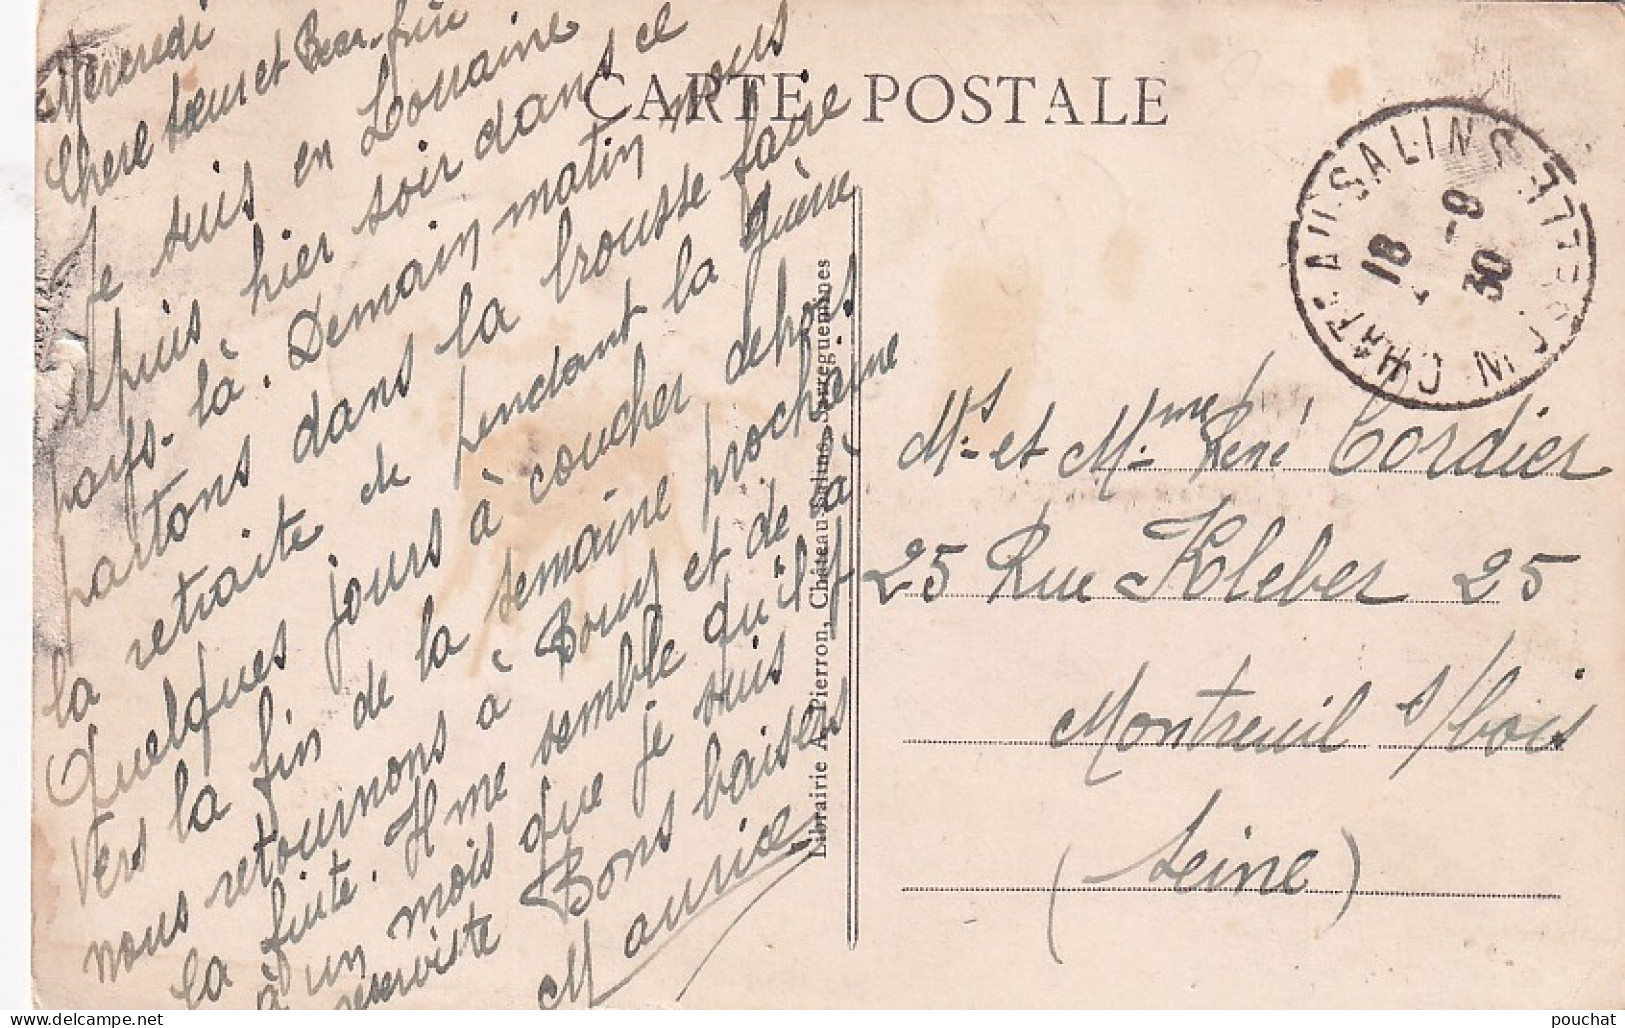 CARTE POSTALE
Mercredi
Chere sœur et Beau-frère
Je suis en Lorraine
depuis hier soir dans ce
pays-là. Demain matin nous
partons dans la brousse faire
la retraite de pendant la guèrre
Quelques jours à coucher dehors
Vers la fin de la semaine prochaine
nous retournons à Bourg et de là
la fuite. Il me semble qu'il y
à un mois que je suis
réserviste Bons baisers
Maurice
Librairie A. Pierron, Château-Salins-Sarreguemines
CHATEAU-SALINS
18 -9
30
Mr. et Mme René Cordier
25 Rue Kleber 25
Montreuil s/bois
(Seine)
pouchat